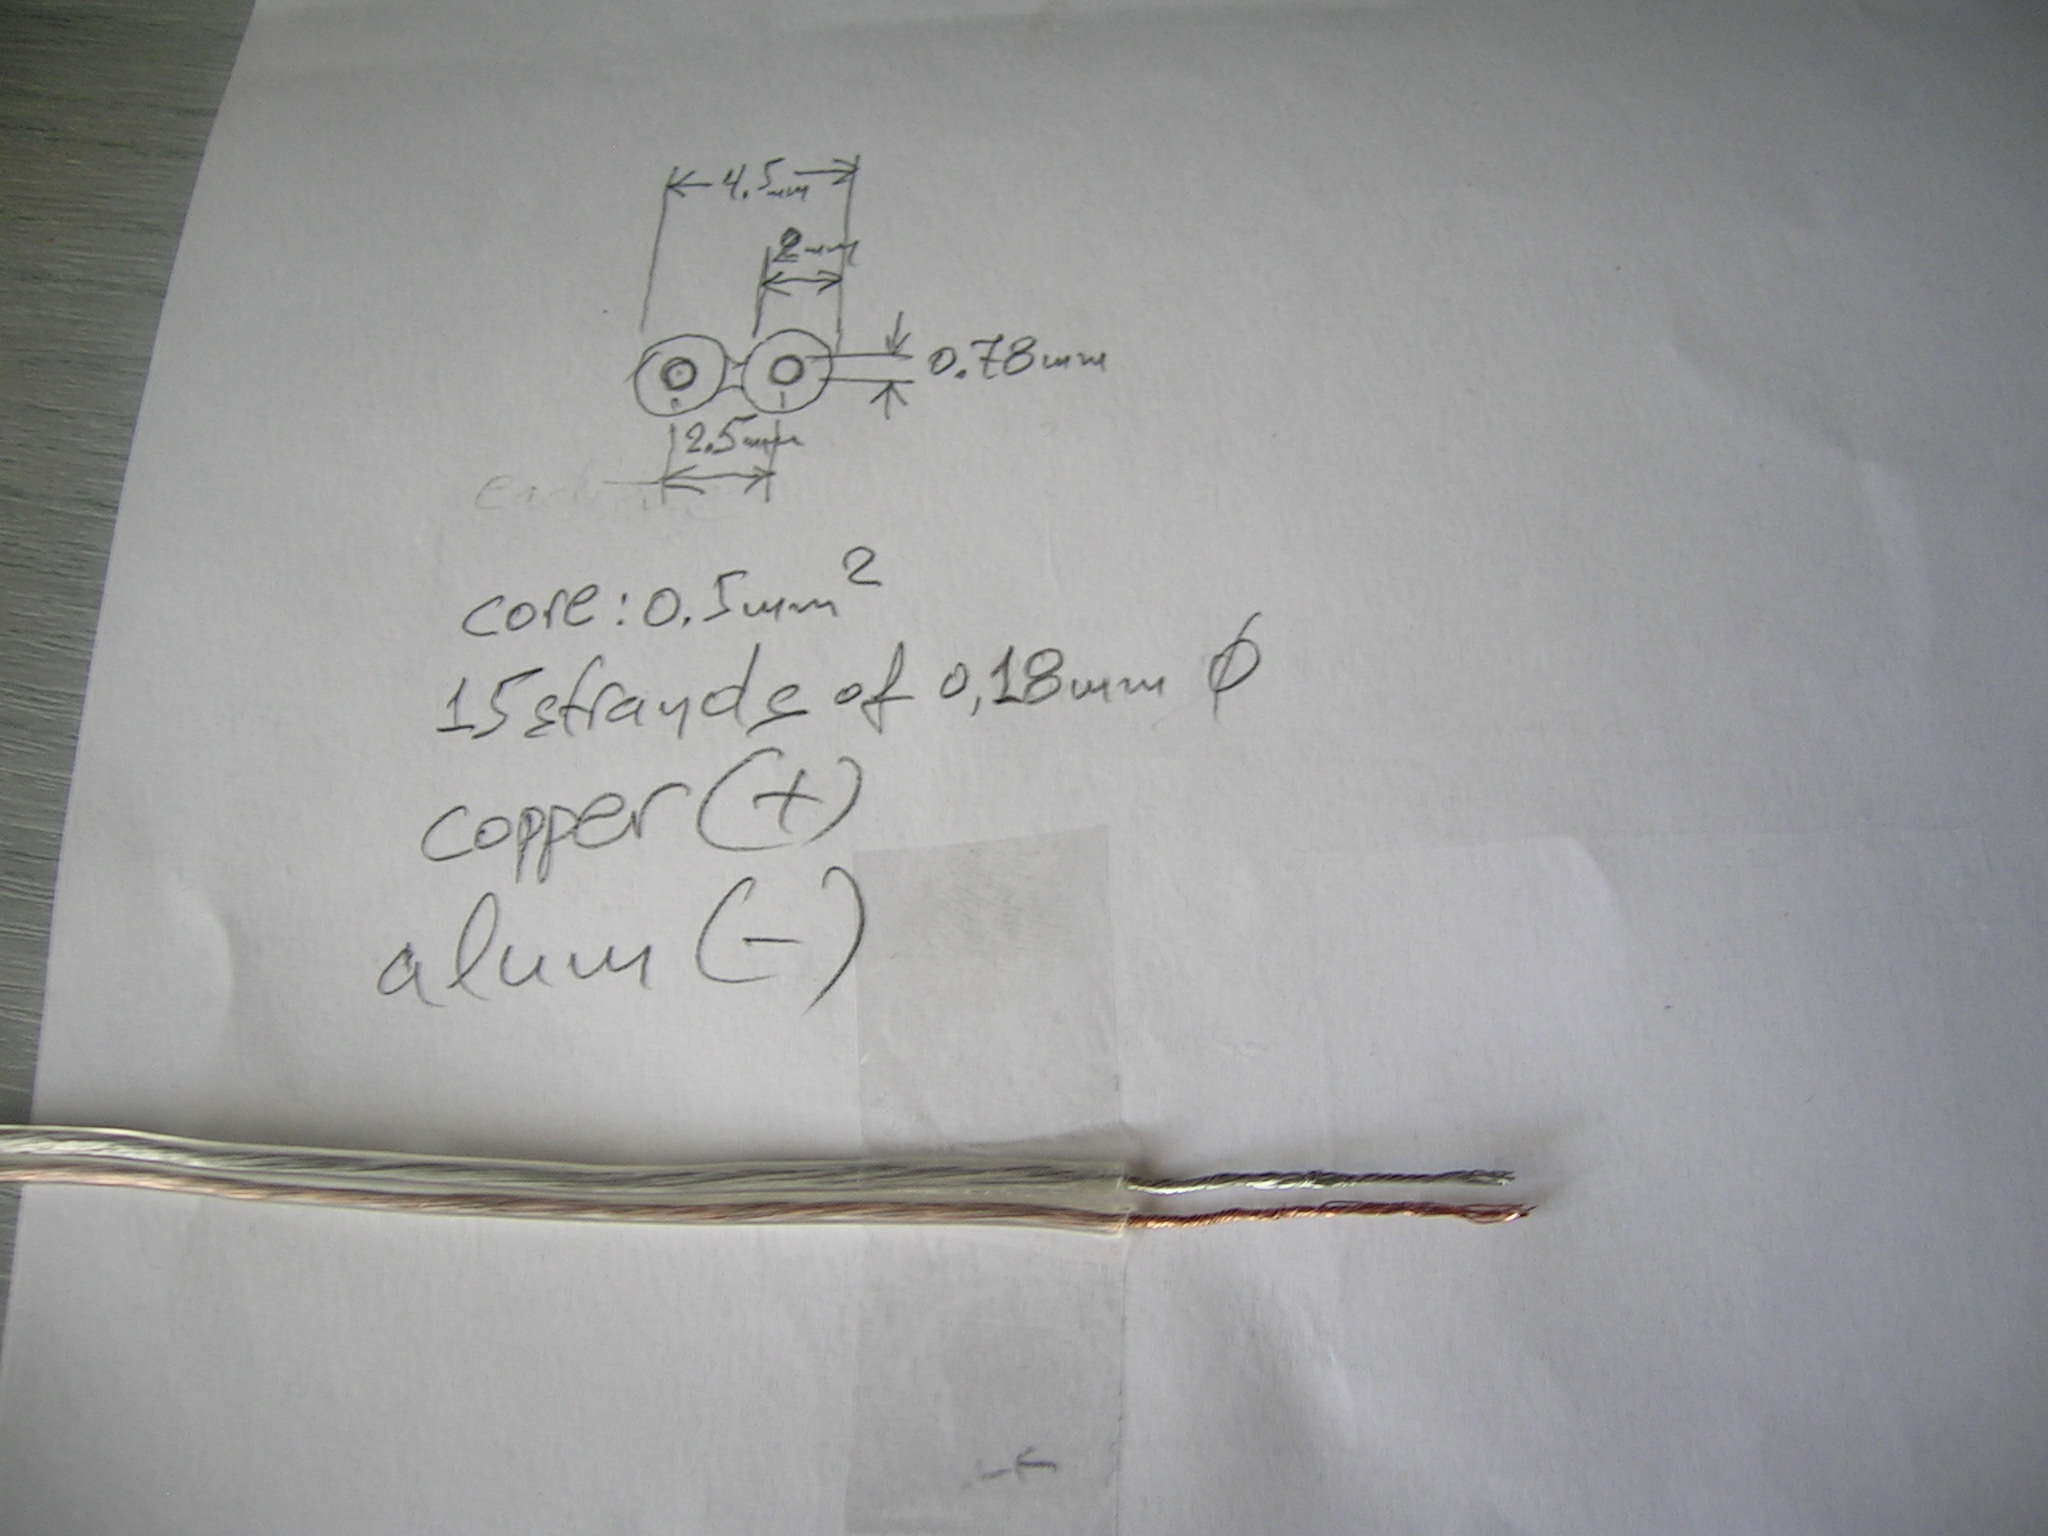 4.5mm
2mm
0.78mm
2.5mm
core: 0.5mm²
15 strands of 0,18mm ϕ
copper (+)
alum (-)